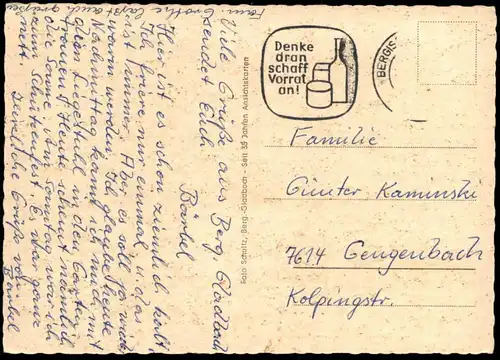 Fam. Grothe läßt auch grüßen
Viele Grüße aus Berg. Gladbach
sendet Euch
Bärbel
Hier ist es schon ziemlich kalt.
Ich friere nur einmal u. das
ist immer. Aber es soll ja wieder
warm werden. Ich glaube heute
Nachmittag kann ich mich mit
dem Liegestuhl in den Garten
trauen. Heute scheint nämlich
die Sonne. Am Sonntag war ich
zum Schützenfest. Es war ganz
nett.
Herzliche Grüße von
Bärbel
Foto Schmitz, Berg.-Gladbach - Seit 35 Jahren Ansichtskarten
Denke
dran
schaff
Vorrat
an!
BERGIS
Familie
Günter Kaminski
7614 Gengenbach
Kolpingstr.